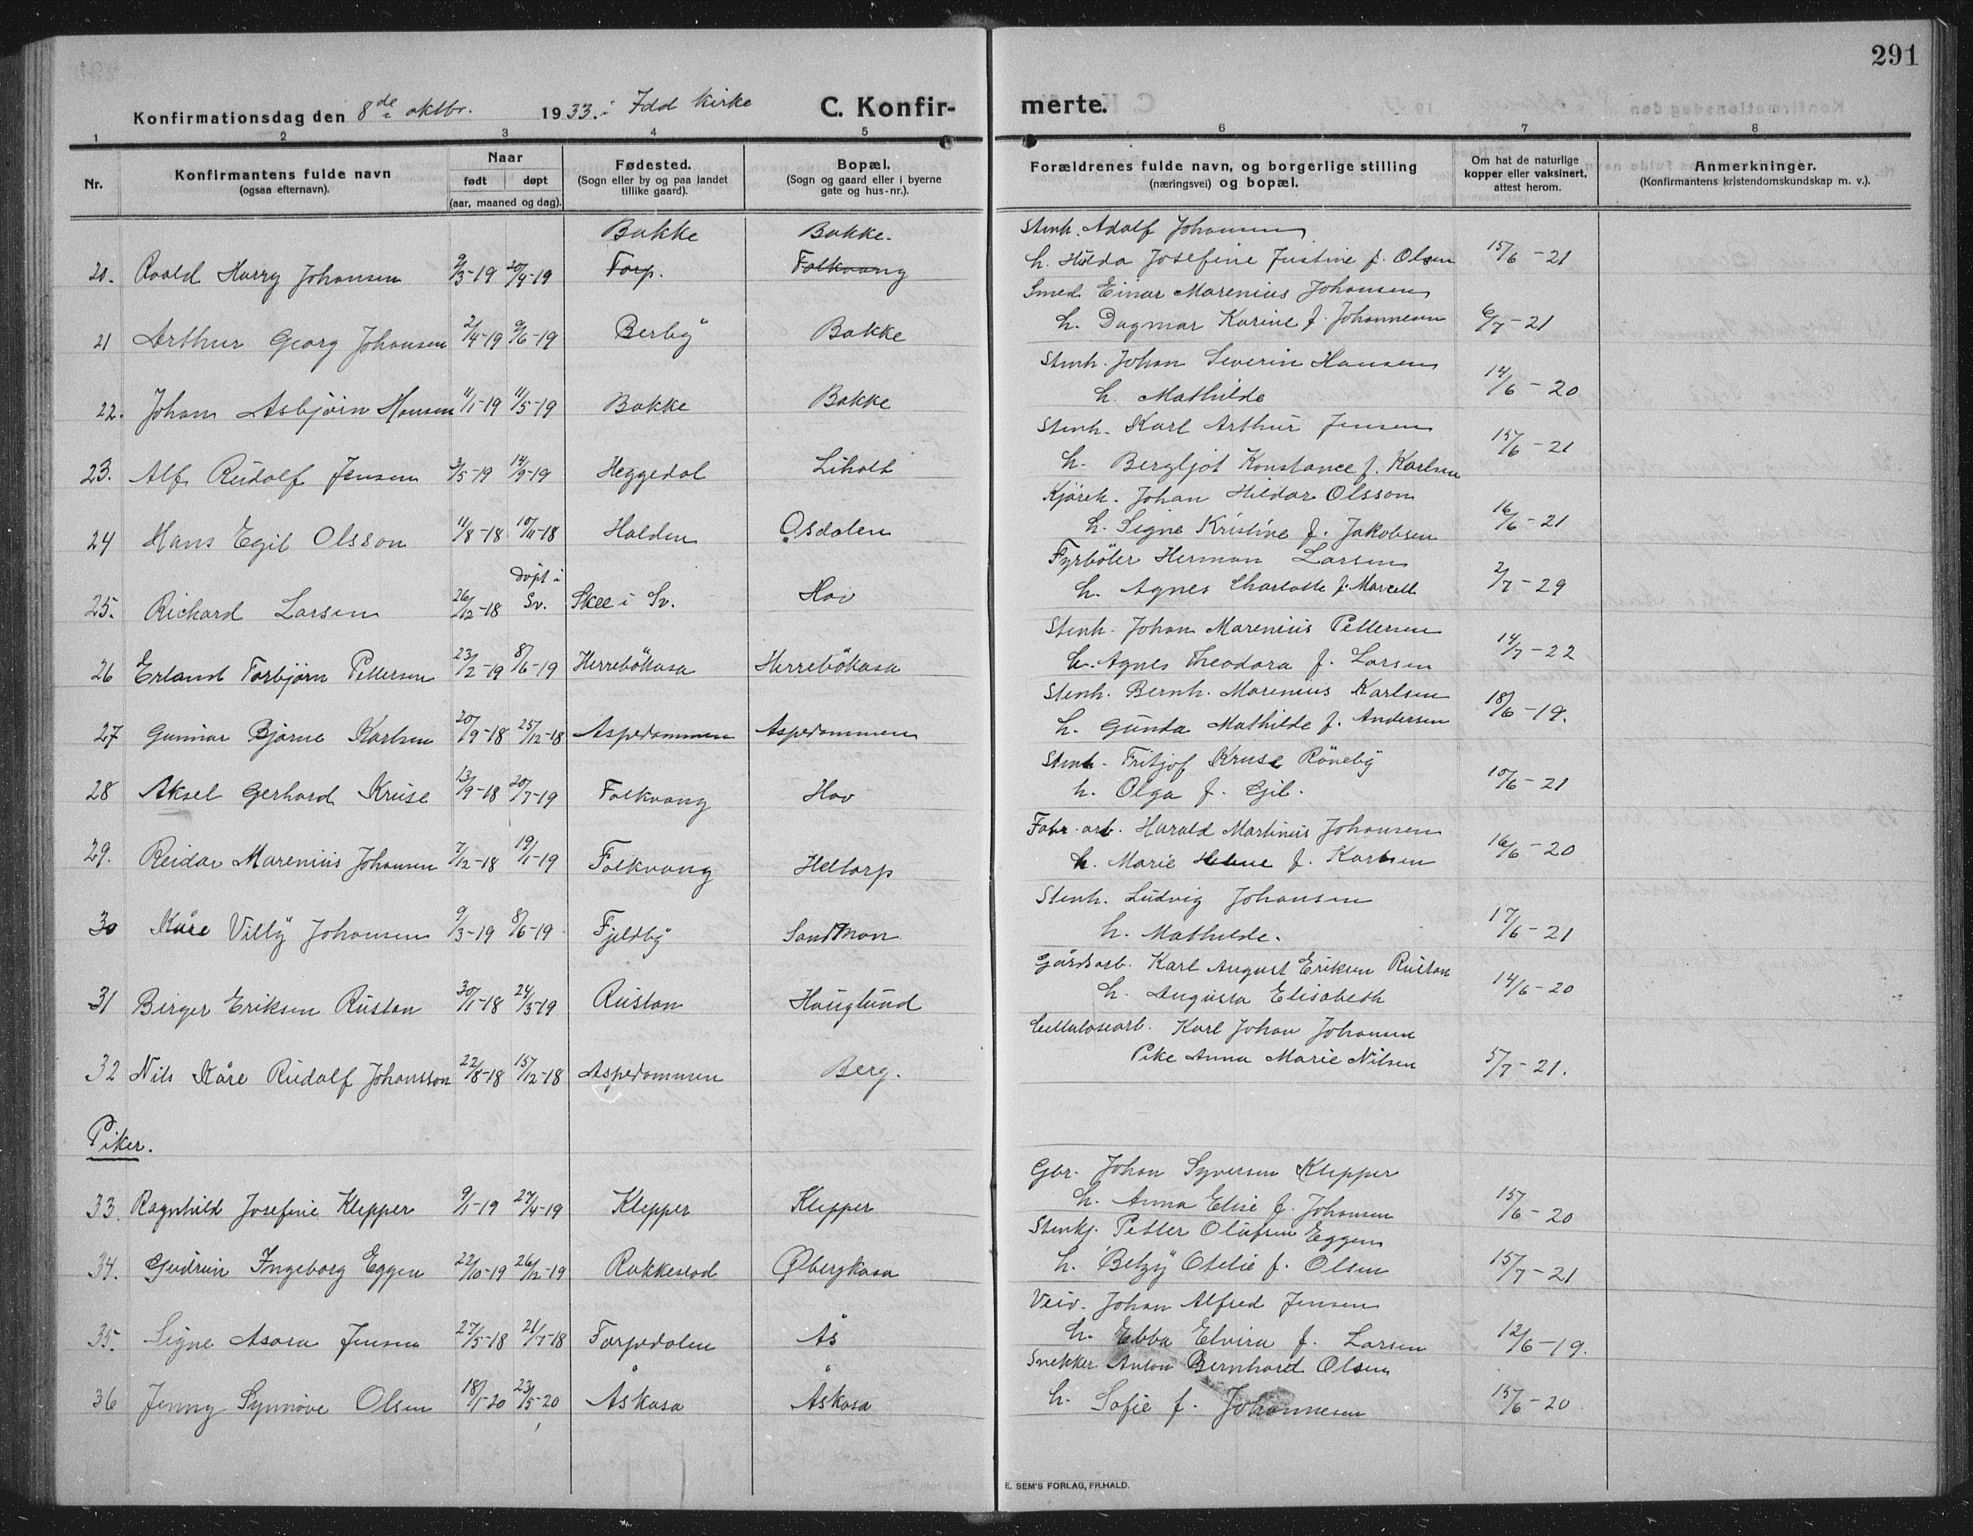 291
Konfirmationsdag den 8de oktbr. 1933 i Idd kirke C. Konfirmerte.
1 2 3 4 5 6 7 8
Nr. Konfirmantens fulde navn (ogsaa efternavn). Naar født døpt (aar, maaned og dag). Fødested. (Sogn eller by og paa landet tillike gaard). Bopæl. (Sogn og gaard eller i byerne gate og hus-nr.). Forældrenes fulde navn, og borgerlige stilling (næringsvei) og bopæl. Om hat de naturlige kopper eller vaksinert, attest herom. Anmerkninger. (Konfirmantens kristendomskundskap m. v.).
Bakke Bakke. Stenh. Adolf Johansen
20. Roald Harry Johansen 9/3-19 20/4-19 Torp. Folkvang h. Hilda Josefine Justine f. Olsen 15/6-21
Smed Einar Marenius Johansen
21 Arthur Georg Johansen 2/4-19 9/6-19 Berby Bakke h. Dagmar Karine f. Johannesen 6/7-21
Stenh. Johan Severin Hansen
22. Johan Asbjørn Hansen 11/1-19 11/5-19 Bakke Bakke h. Mathilde 14/6-20
Stenh. Karl Arthur Jensen
23. Alf Rudolf Jensen 3/5-19 14/9-19 Heggedal Liholt h. Bergljot Konstance f. Karlsen 15/6-21
Kjørek. Johan Hildar Olsson
24 Hans Egil Olsson 11/8-18 10/11-18 Halden Osdalen h. Signe Kristine f. Jakobsen 16/6-21
Fyrbøter Herman Larsen
25. Richard Larsen 26/12-18 døpt i Sv. Skee i Sv. Hov h. Agnes Charlotte f. Marcell 2/7-29
Stenh. Johan Marenius Pettersen
26 Erland Torbjørn Pettersen 23/2-19 8/6-19 Herrebökasa Herrebökasa h. Agnes Theodora f. Larsen 14/7-22
Stenh. Bernh. Marenius Karlsen
27 Gunnar Bjarne Karlsen 20/9-18 25/12-18 Aspedammen Aspedammen h. Gunda Mathilde f. Andersen 18/6-19.
Stenh. Fritjof Kruse Röneby
28 Aksel Gerhard Kruse 13/9-18 20/7-19 Folkvang Hov h. Olga f. Gjil. 10/6-21
Fabr. arb. Harald Martinus Johansen
29. Reidar Marenius Johansen 7/12-18 19/1-19 Folkvang Heltorp h. Marie Helene f. Karlsen 16/6-20
Stenh. Ludvig Johansen
30 Kåre Villy Johansen 9/3-19 8/6-19 Fjeldby Sandmon h. Mathilde. 17/6-21
Gårdsarb. Karl August Eriksen Rustan
31 Birger Eriksen Rustan 30/1-18 24/3-19 Rustan Hauglund h. Augusta Elisabeth 14/6-20
Cellulosearb. Karl Johan Johansen
32 Nils Kåre Rudolf Johansson 22/8-18 15/12-18 Aspedammen Berg. Pike Anna Marie Nilsen 5/7-21.
Piker.
Gbr. Johan Syversen Klepper
33. Ragnhild Josefine Klepper 9/1-19 27/4-19 Klepper Klepper h. Anna Elise f. Johansen 15/6-20
Stenkj. Petter Olafsen Eggen
34. Gudrun Ingeborg Eggen 22/10-19 26/12-19 Rakkestad Øbergkasa h. Betzy Otelie f. Olsen 15/7-21
Veiv. Johan Alfred Jensen
35. Signe Asora Jensen 27/5-18 21/7-18 Torpedalen Ås h. Ebba Elvira f. Larsen 12/6-19.
Snekker Anton Bernhard Olsen
36 Jenny Synnøve Olsen 18/1-20 23/5-20 Åskasa Åskasa h. Sofie f. Johannesen 15/6-20.
E. SEM'S FORLAG, FR.HALD.